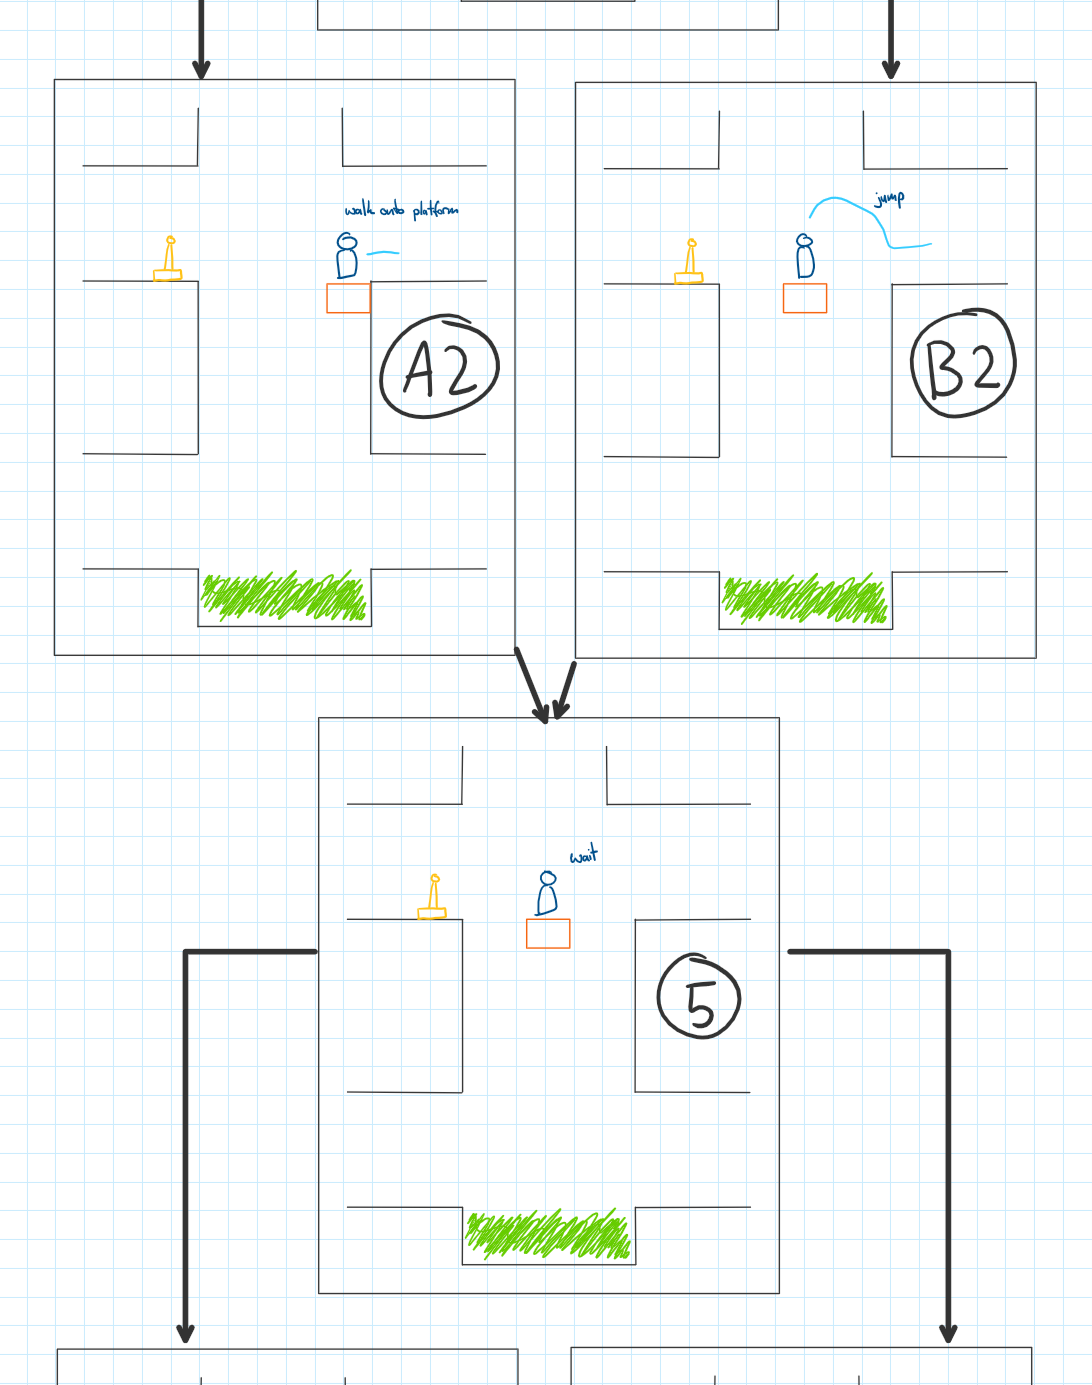 walk onto platform
A2
jump
B2
wait
5